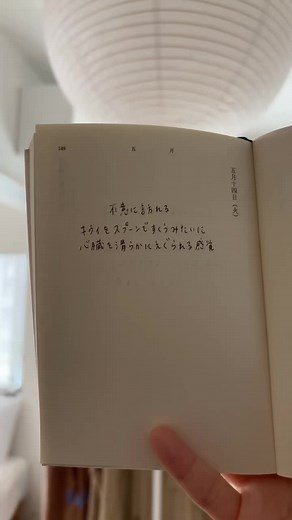 148
五月
五月十四日(火)
不意に言われる
キウイをスプーンですくうみたいに
心臓を滑らかにえぐられる感覚